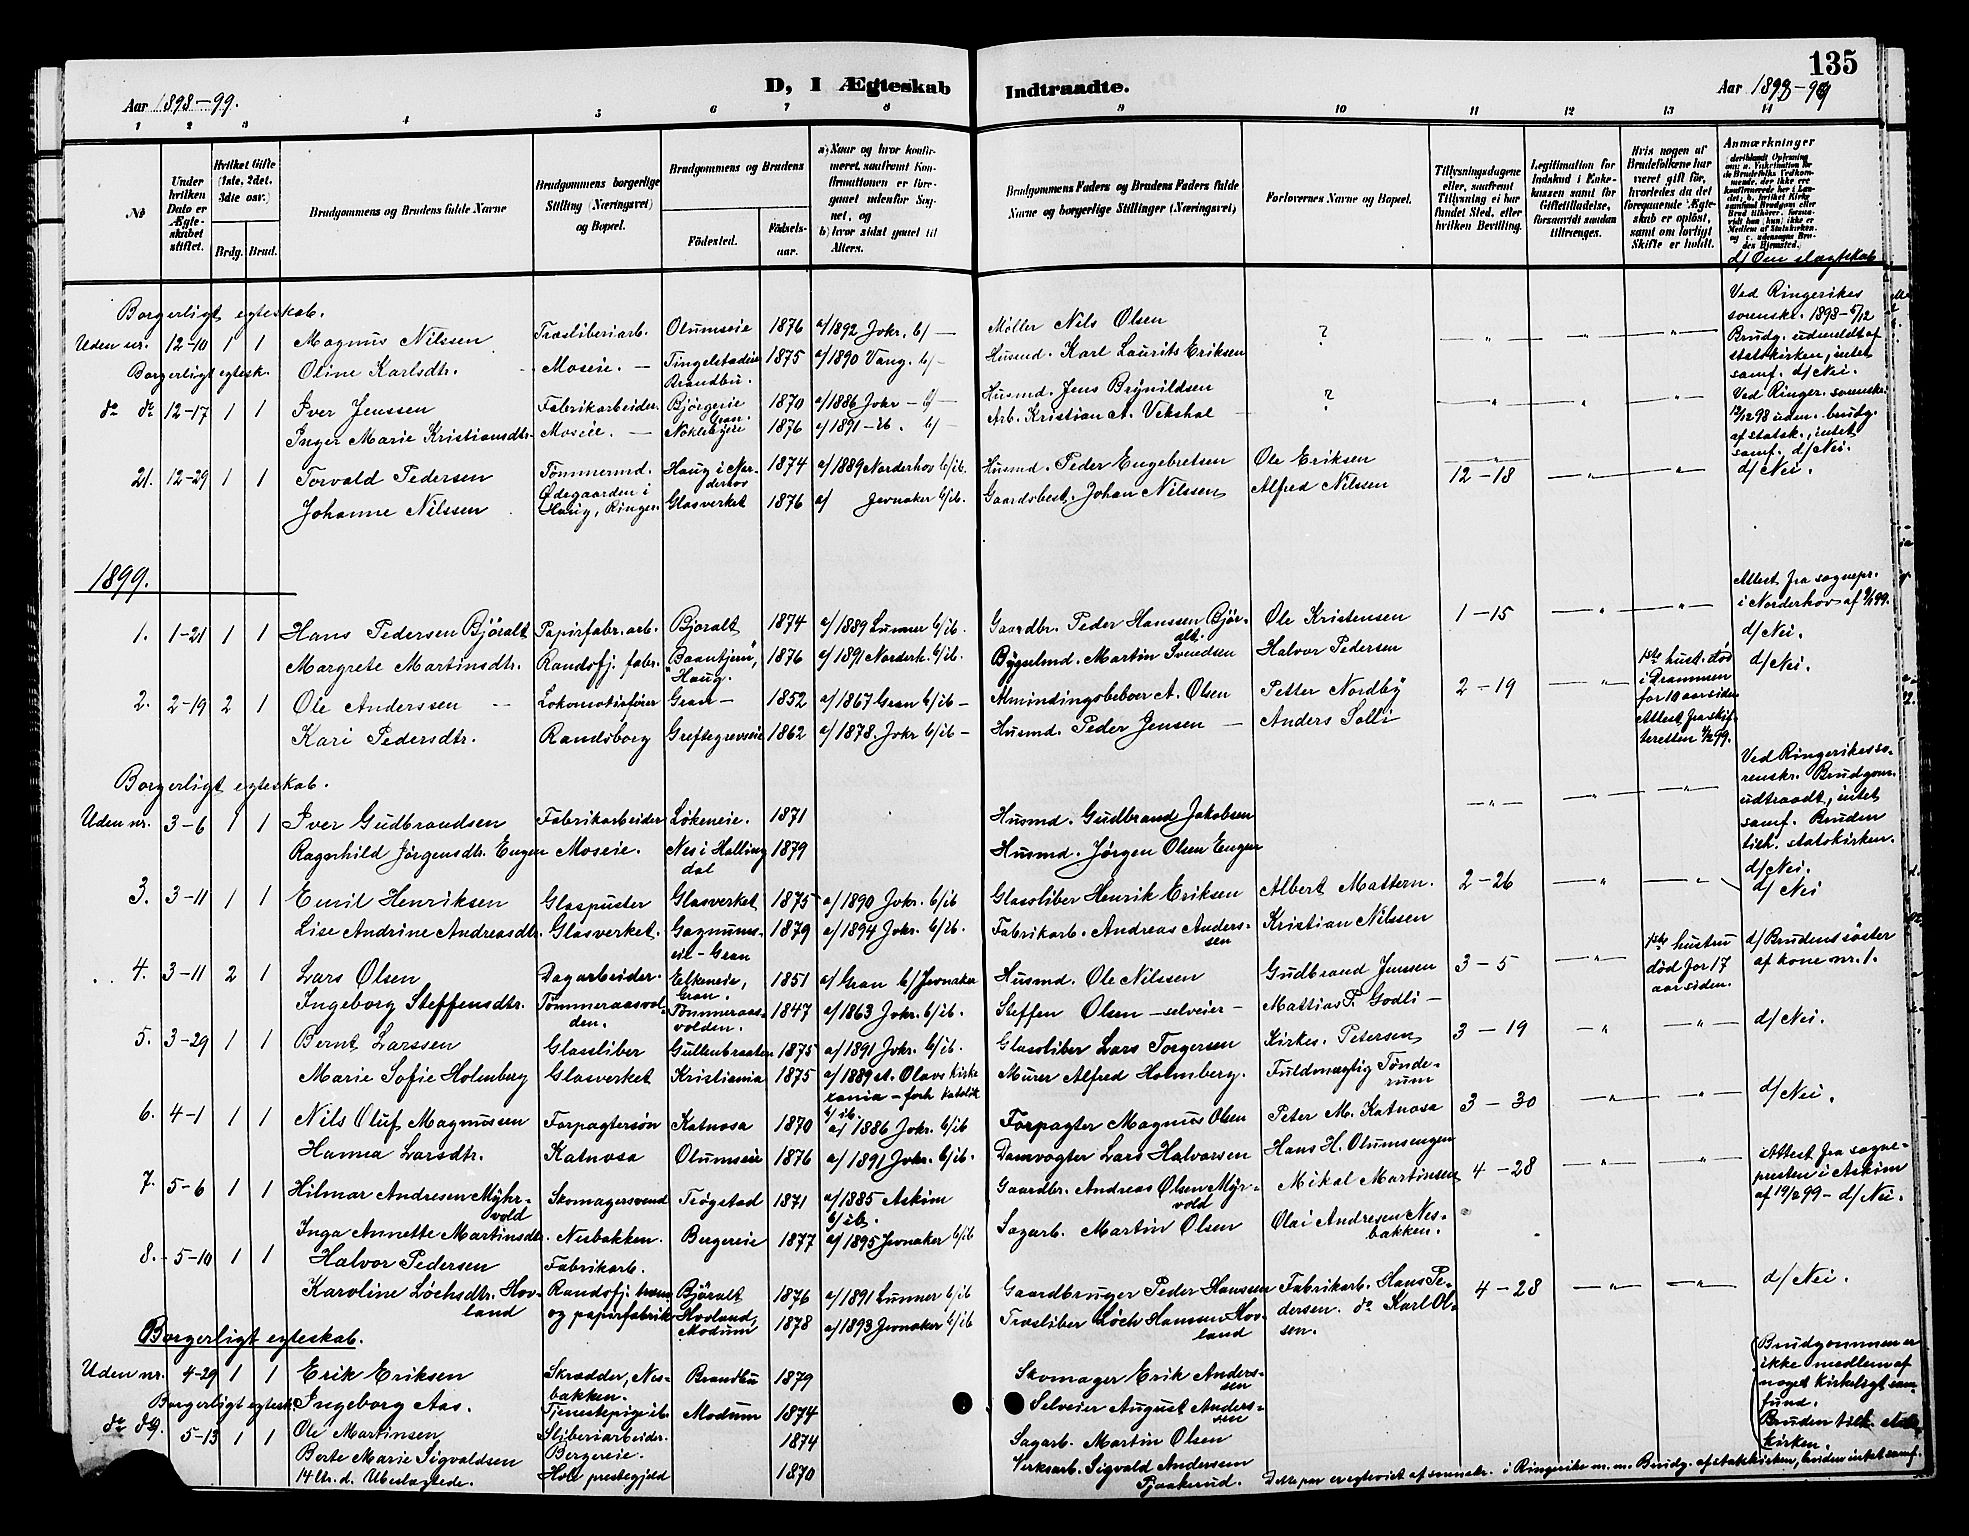 135
D, I Ægteskab Indtraadte.
Aar 1898-99.
Aar 1898-99
1 2 3 4 5 6 7 8 9 10 11 12 13 14
No
Under hvilken Dato er Ægteskabet stiftet.
Hvilket Gifte (1ste, 2det, 3die osv.)
Brdg. Brud.
Brudgommens og Brudens fulde Navne
Brudgommens borgerlige Stilling (Næringsvei) og Bopæl.
Brudgommens og Brudens
Fødested.
Fødselsaar.
a) Naar og hvor konfirmeret, saafremt Konfirmationen er foregaaet udenfor Sognet, og
b) hvor sidst gaaet til Alters.
Brudgommens Faders og Brudens Faders fulde Navne og borgerlige Stillinger (Næringsvei)
Forlovernes Navne og Bopæl.
Tillysningsdagene eller, saafremt Tillysning ei har fundet Sted, efter hvilken Bevilling.
Legitimation for Indskud i Enkekassen samt for Giftetilladelse, forsaavidt saadan tiltrænges.
Hvis nogen af Brudefolkene har været gift før, hvorledes da det foregaaende Ægteskab er opløst, samt om lovligt Skifte er holdt.
Anmærkninger
d/ Om slægtskab
Borgerligt egteskab.
Uden nr. 12-10 1 1 Magnus Nilssen Træsliberiarb. Olumseie 1876 a/1892 Jvkr. b/ — Møller Nils Olsen ? — " — — " — — " —
Oline Karlsdtr. Moseie. — Tingelstadeie Brandbu. 1875 a/1890 Vang. b/ — Husmd. Karl Laurits Eriksen
Ved Ringerikes sorenskr. 1898-6/12 Brudg. udmeldt af statskirken, intet samf. d/ Nei.
Borgerligt egtesk.
do do 12-17 1 1 Iver Jenssen Fabrikarbeider. Bjørgeeie Gran 1870 a/1886 Jvkr — b/ — Husmd. Jens Brynildsen ? — " — — " — — " —
Inger Marie Kristiansdtr. Moseie. — Noklebyeie 1876 a/1891 — ib. b/ — Arb. Kristian A. Vekshal
Ved Ringer. sorenskr. 12/12 98 uden. brudg. af statsk., intet samf. d/ Nei.
21. 12-29 1 1 Torvald Pedersen Tømmermd. Haug i Norderhov 1874 a/1889 Norderhov b/ib. Husmd. Peder Engebretsen Ole Eriksen 12-18 — " — — " — d/ Nei.
Johanne Nilssen Ødegaarden i Haug, Ringer. Glasverket 1876 a/ Jevnaker b/ib. Gaardsbest. Johan Nilssen Alfred Nilssen
1899.
1. 1-21 1 1 Hans Pedersen Björalt Papirfabr. arb. Bjoralt 1874 a/1889 Lunner b/ib. Gaardbr. Peder Hanssen Bjøralt. Ole Kristensen 1-15 — " — — " —
Margrete Martinsdtr. Randsfj. fabr. Baantjern, "Haug. 1876 a/1891 Norderh. b/ib. Bygselmd. Martin Svendsen Halvor Pedersen
Attest fra sognepr. i Norderhov af 9/1 99. d/ Nei.
2. 2-19 2 1 Ole Anderssen Lokomotivfører Gran — 1852 a/1867 Gran b/ib — Almindingsbeboer A. Olsen Petter Nordby 2-19 — " —
Kari Pedersdtr. Randsborg Greftegrevseie 1862 a/1878. Jvkr b/ib — Husmd. Peder Jensen — Anders Solli
1ste hust. død i Drammen for 10 aar siden Attest fra skifteretten 4/2 99.
d/ Nei.
Borgerligt egteskab.
Uden nr. 3-6 1 1 Iver Gudbrandsen Fabrikarbeider Løkeneie. 1871 Husmd. Gudbrand Jakobsen — " — — " — — " —
Ragnhild Jørgensdtr. Engen Moseie. Nes i Hallingdal 1879 Husmd. Jørgen Olsen Engen
Ved Ringerikes sorenskr. Brudgom. udtraadt, intet samf. Bruden tilh. statskirken. d/ Nei.
3. 3-11 1 1 Emil Henriksen Glaspuster Glasverket 1875 a/1890 Jvkr. b/ib Glassliber Henrik Eriksen Albert Mattern. 2-26 — " — — " — d/ Nei
Lise Andrine Andreasdtr. Glasverket. Gagnumseie - Gran 1879 a/1894 Jvkr. b/ib. Fabrikarb. Andreas Anderssen Kristian Nilssen
4. 3-11 2 1 Lars Olsen Dagarbeider. Elkeneie, Gran. 1851 a/ Gran b/ Jevnaker Husmd. Ole Nilssen Gudbrand Jenssen 3-5 — " —
Ingeborg Steffensdtr. Tømmeraasvolden. Tømmeraasvolden. 1847 a/1863 Jvkr. b/ib. Steffen Olsen — selveier — Mattias P. Godli —
1ste hustru død for 17 aar siden.
d/ Brudens søster af kone nr. 1.
5. 3-29 1 1 Bernt Larssen Glassliber Gullenbraaten 1875 a/1891 Jvkr. b/ib. Glassliber Lars Torgersen Kirkes. Petersen 3-19 — " — — " — d/ Nei.
Marie Sofie Holmberg Glasverket Kristiania 1875 a/1889 St. Olavs kirke xania - forh katolik b/ib. Murer Alfred Holmberg. Fuldmægtig Tønderum
6. 4-1 1 1 Nils Oluf Magnussen Forpagtersøn Katnosa 1870 a/ 1886 Jvkr. b/ib Forpagter Magnus Olsen Peter M. Katnosa 3-30 — " — — " — d/ Nei.
Hanna Larsdtr. Katnosa Olumseie 1876 a/ 1891 Jvkr. b/ib. Damvogter Lars Halvorsen Hans H. Olumsengen
7. 5-6 1 1 Hilmar Andresen Myhrvold Skomagersvend Trøgstad 1871 a/1885 Askim b/ib. Gaardbr. Andreas Olsen Myrvold Mikal Martinsen 4-28 — " — — " —
Inga Annette Martinsdtr. Nesbakken. Bergereie 1877 a/1895 Jevnaker b/ib Sagarb. Martin Olsen Olai Andresen Nesbakken.
Attest fra sognepresten i Askim af 19/2 99 — d/ Nei.
8. 5-10 1 1 Halvor Pedersen Fabrikarb. Björalt 1876 a/1891 Lunner b/ib Gaardbruger Peder Hanssen Fabrikarb. Hans Pedersen. do Karl Olsen. 4-28 — " — — " — d/ Nei.
Karoline Løchsdtr. Hovland Randsfj. træm. og papirfabrik Hovland, Modum 1878 a/1893 Jevnaker b/ib Træsliber Løch Hansen Hovland
Borgerligt egteskab.
Uden nr. 4-29 1 1 Erik Eriksen Skrædder, Nesbakken. Brandbu 1879 Skomager Erik Anderssen
Ingeborg Aas. Tjenestepige ib. Modum 1874 Selveier August Anderssen
Brudgommen er ikke medlem af noget kirkeligt samfund. Bruden tilh. statskirken.
Borgerligt egtesk.
do do. 5-13 1 1 Ole Martinsen Sliberiarbeider. 1874 Sagarb. Martin Olsen
Berte Marie Sigvaldsen Bergereie. 1870 Verksarb. Sigvald Andersen Pjaakerud.
Hole prestegjeld
Dette par er egteviet af sorenskr. i Ringerike m. m. Brudg. af statskirken, bruden intet samf.